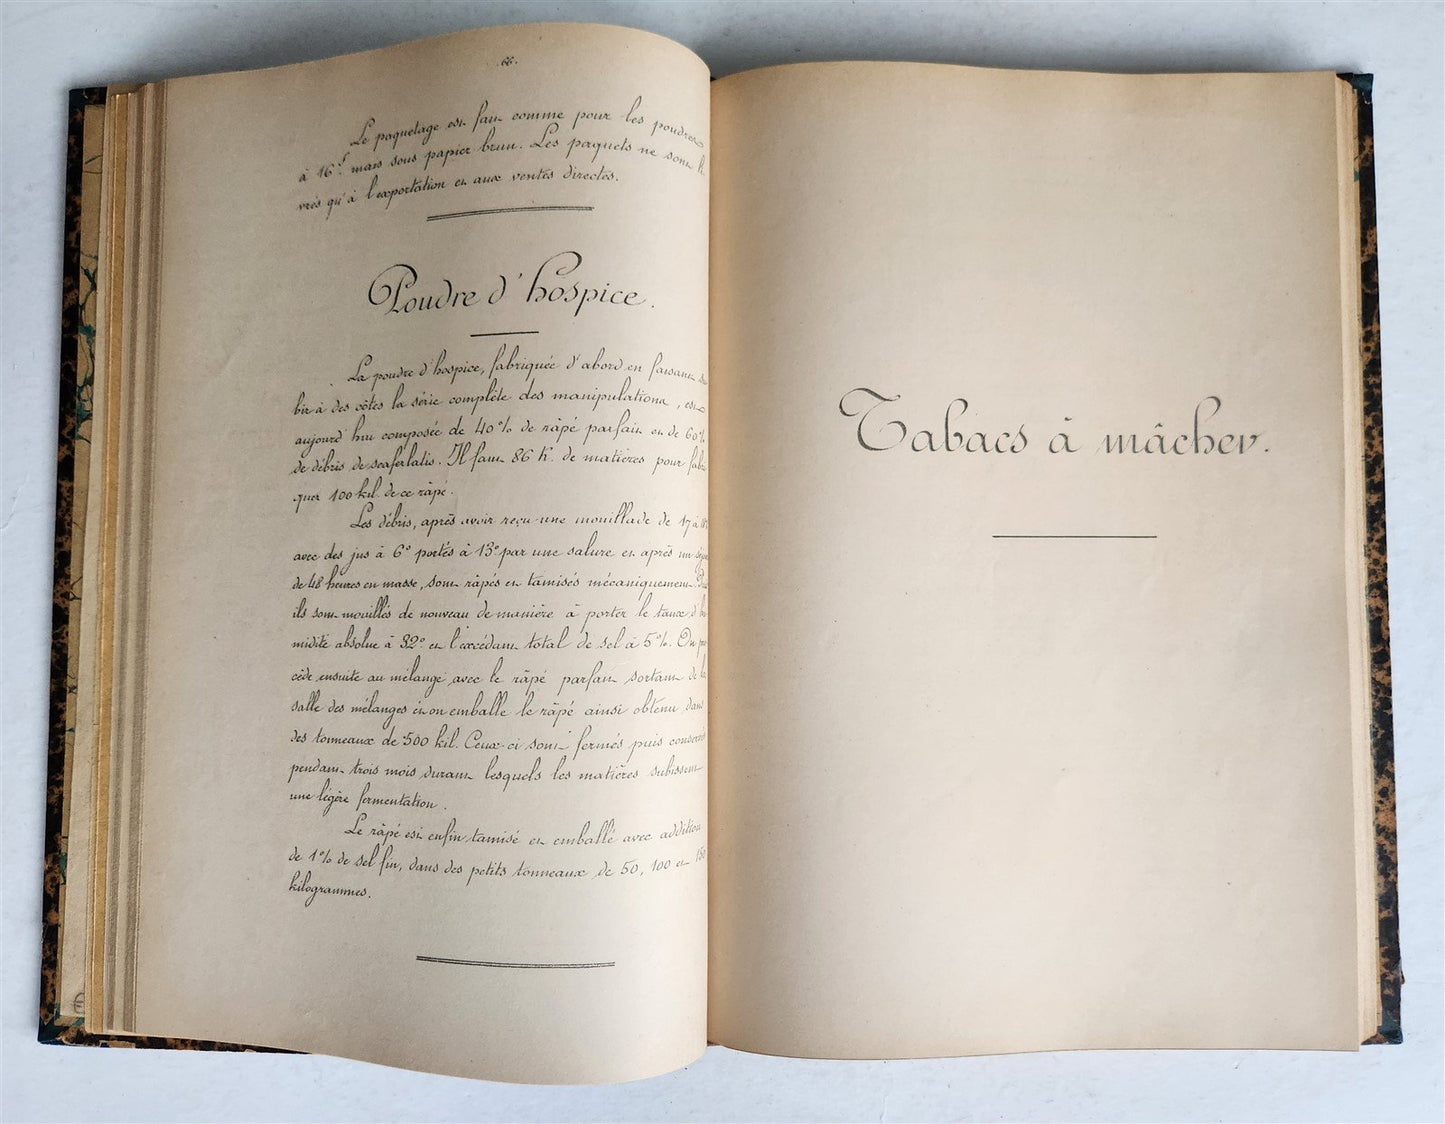 66.
Le paquetage est fait comme pour les poudres
à 16f mais sous papier brun. Les paquets ne sont li
vrés qu'à l'exportation et aux ventes directes.
Poudre d'hospice.
La poudre d'hospice, fabriquée d'abord en faisant su
bir à des côtes la série complète des manipulations, est
aujourd'hui composée de 40% de râpé parfait et de 60%
de débris de scaferlatis. Il faut 86 k. de matières pour fabri
quer 100 kil. de ce râpé.
Les débris, après avoir reçu une mouillade de 17 à
avec des jus à 6° portés à 13° par une salure et après un séjour
de 48 heures en masse, sont râpés et tamisés mécaniquement. Puis
ils sont mouillés de nouveau de manière à porter le taux d'hu
midité absolue à 32° et l'excédant total de sel à 5%. On pro
cède ensuite au mélange avec le râpé parfait sortant de la
salle des mélanges et on emballe le râpé ainsi obtenu dans
des tonneaux de 500 kil. Ceux-ci sont fermés puis conservés
pendant trois mois durant lesquels les matières subissent
une légère fermentation.
Le râpé est enfin tamisé et emballé avec addition
de 1% de sel fin, dans des petits tonneaux de 50, 100 et 150
kilogrammes.
Tabacs à mâcher.